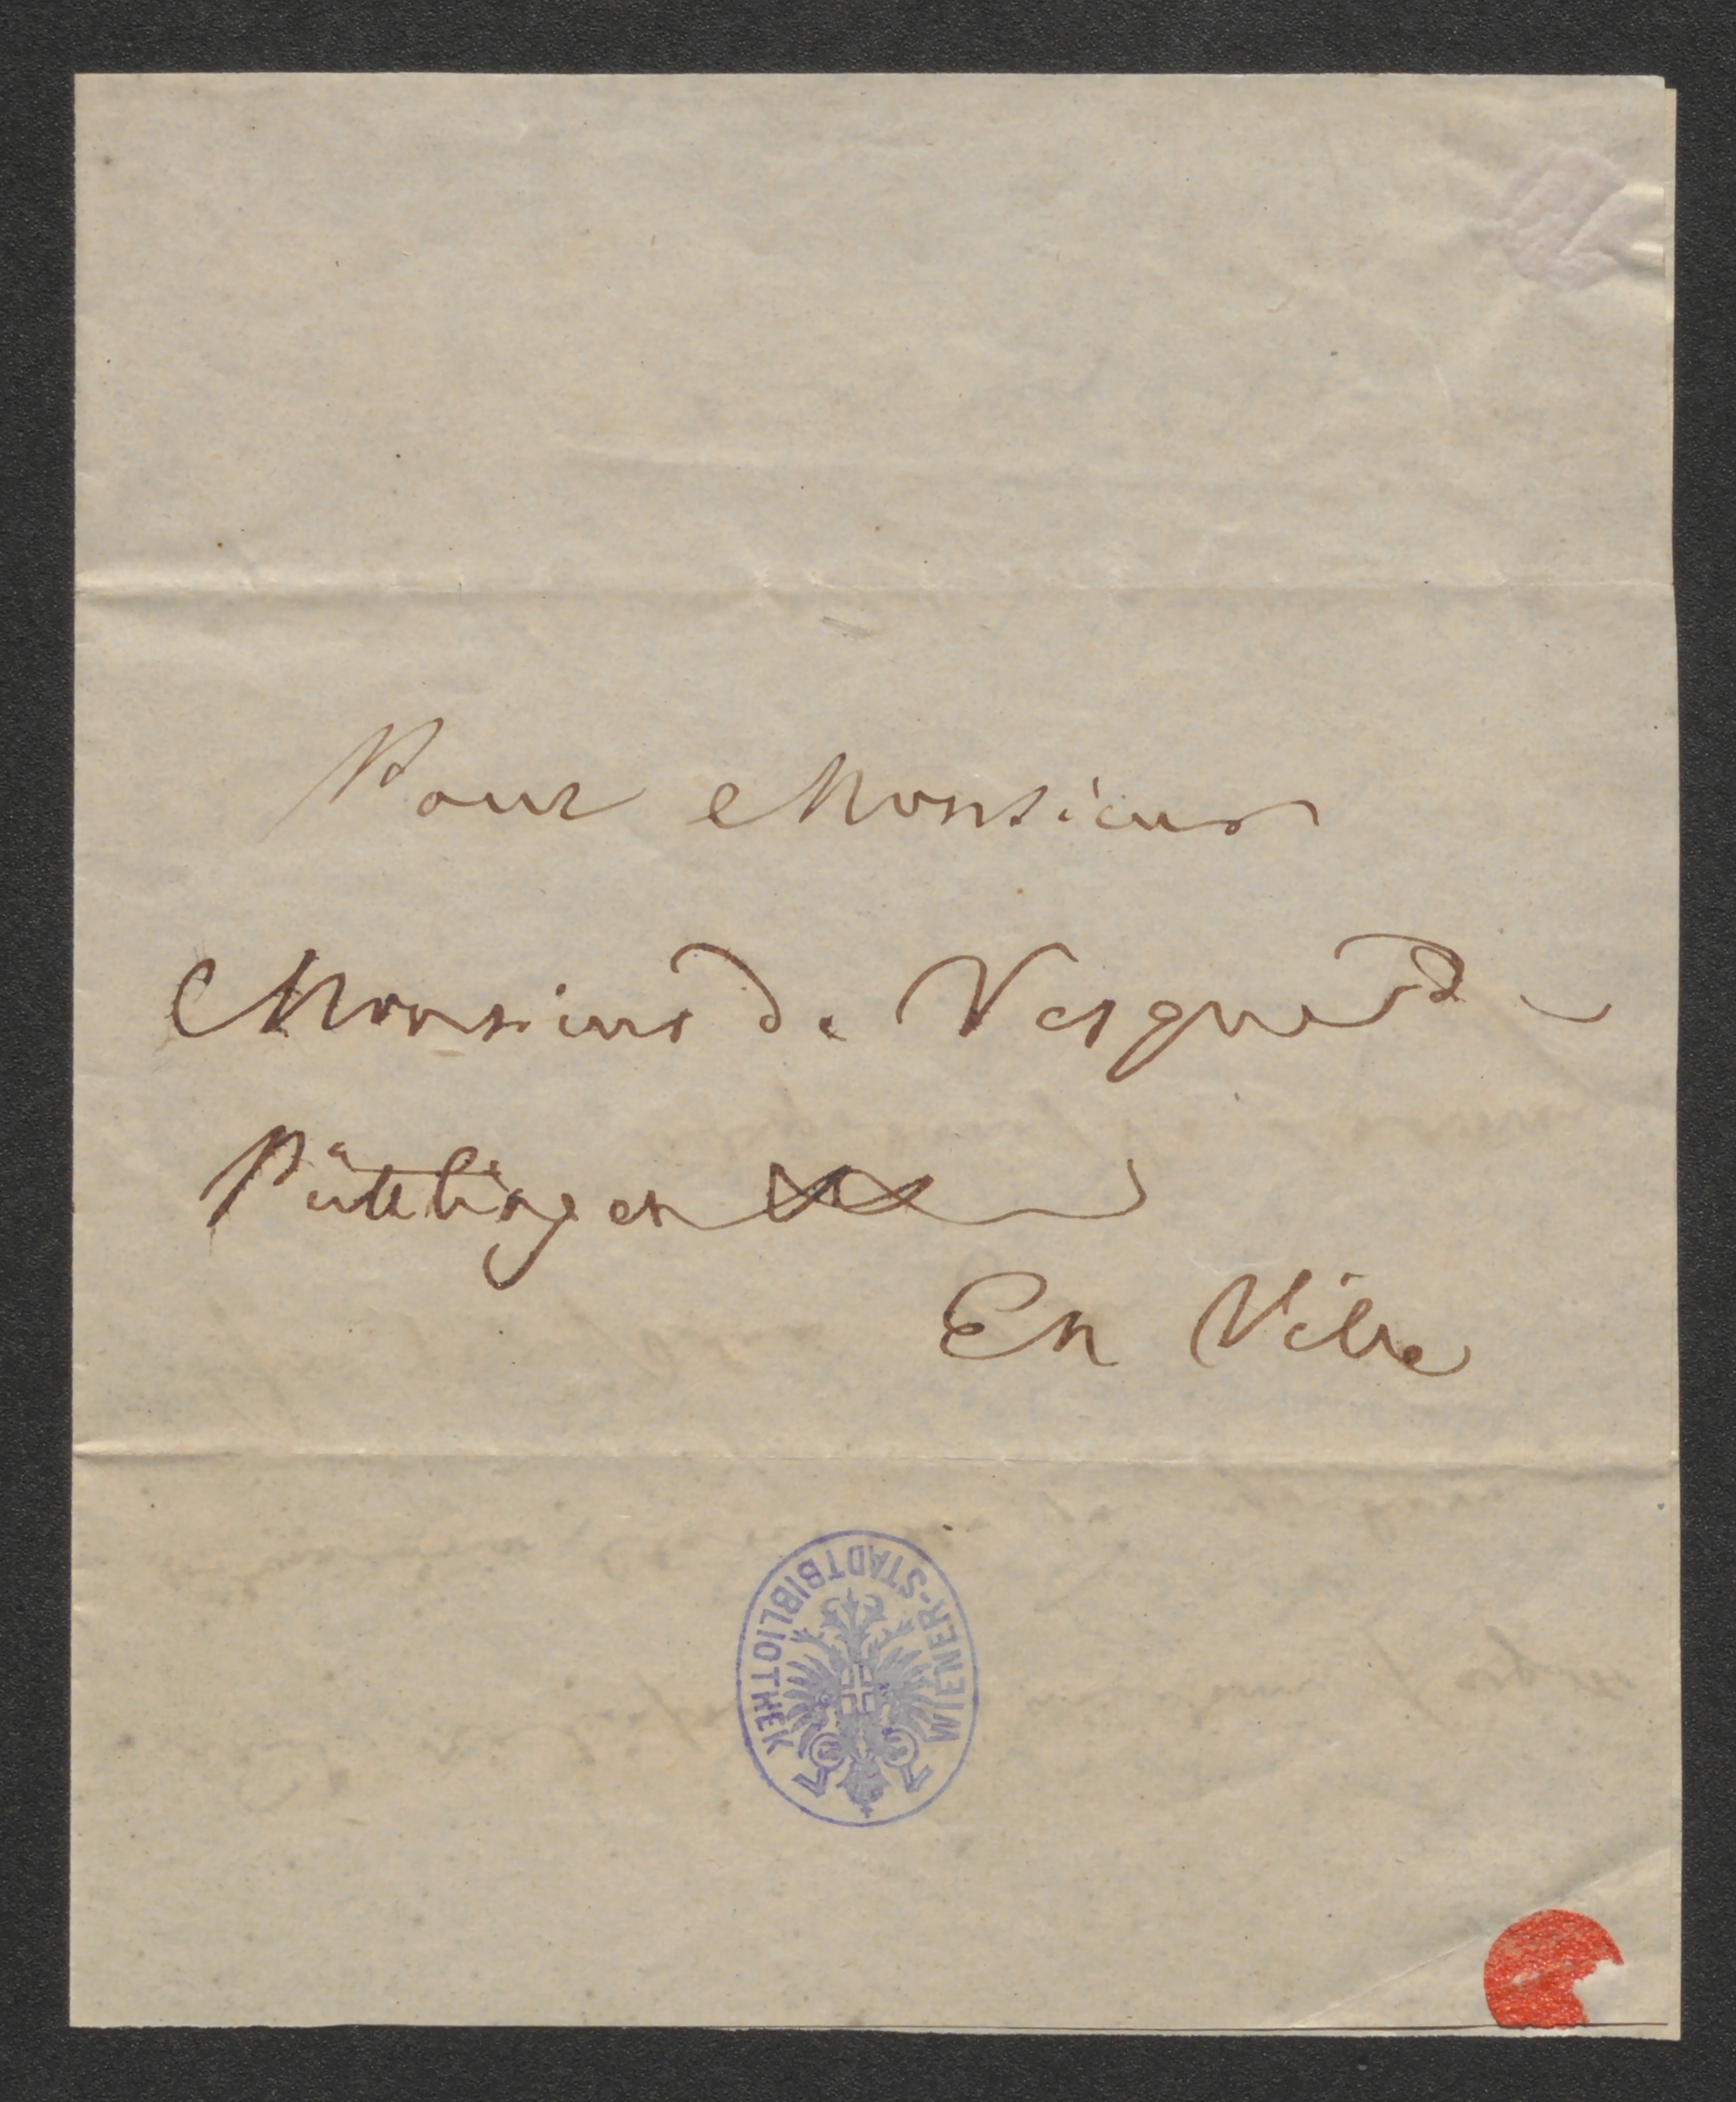 Pour Monsieur
Monsieur de Vesque de
Püttlingen
En Ville
WIENER-STADTBIBLIOTHEK